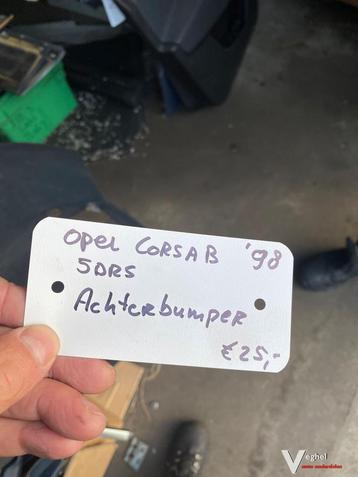 Opel CORSA B '98
5DRS
Achterbumper
€25,-
Veghel